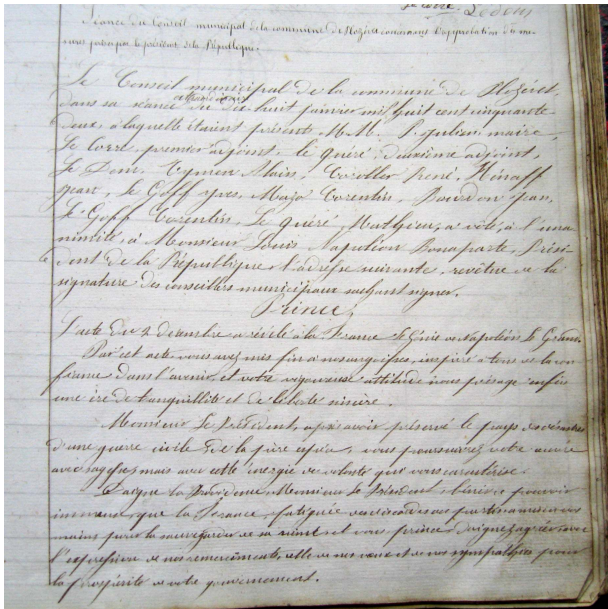 Le Corre. Ledous
Séance du Conseil municipal de la commune de Plozévet contenant l'approbation des mesures
prises par le président de la République.
Le Conseil municipal de la commune de Plozévet,
dans sa séance extraordinaire du dix huit janvier mil huit cent cinquante
deux, à laquelle étaient présents M.M. P. Julien maire,
Le Corre, premier adjoint, le quéré, deuxième adjoint,
Le Dem, Cymen Alain, Coroller René, Hénaff
Jean, Le Goff Yves, Majo Corentin, Bourdon Jean,
Le Goff Corentin, Le quéré Mathieu, a voté, à l'una
nimité, à Monsieur Louis Napoléon Bonaparte, Prési
dent de la République, l'adresse suivante, revêtue de la
signature des conseillers municipaux sachant signer.
Prince,
L'acte du 2 décembre a révélé à la France le Génie de Napoléon le Grand.
Par cet acte, vous avez mis fin à nos angoisses, inspiré à tous de la con
fiance dans l'avenir, et votre vigoureuse attitude nous présage enfin
une ère de tranquillité et de liberté sincère.
Monsieur Le Président, après avoir préservé le pays des désastres
d'une guerre civile de la pire espèce, vous poursuivrez votre œuvre
avec sagesse, mais avec cette énergie de volonté qui vous caractérise.
Daigne la Providence, Monsieur le Président, bénir ce pouvoir
immense que la France, fatiguée de dissensions par vos mains
mains pour la sauvegarde de sa et vous prince, daignez agréer avec
l'expression de nos remerciements, celle de nos vœux et de nos sympathies pour
la prospérité de votre gouvernement.